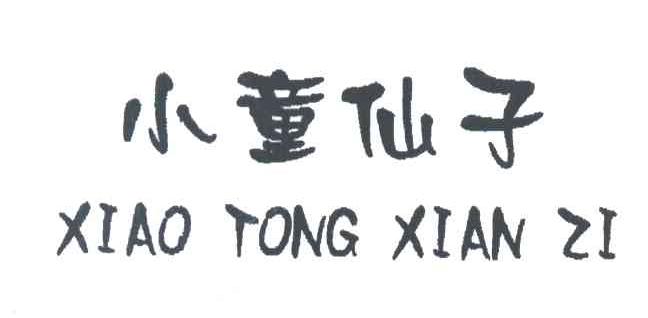 小童仙子
XIAO TONG XIAN ZI